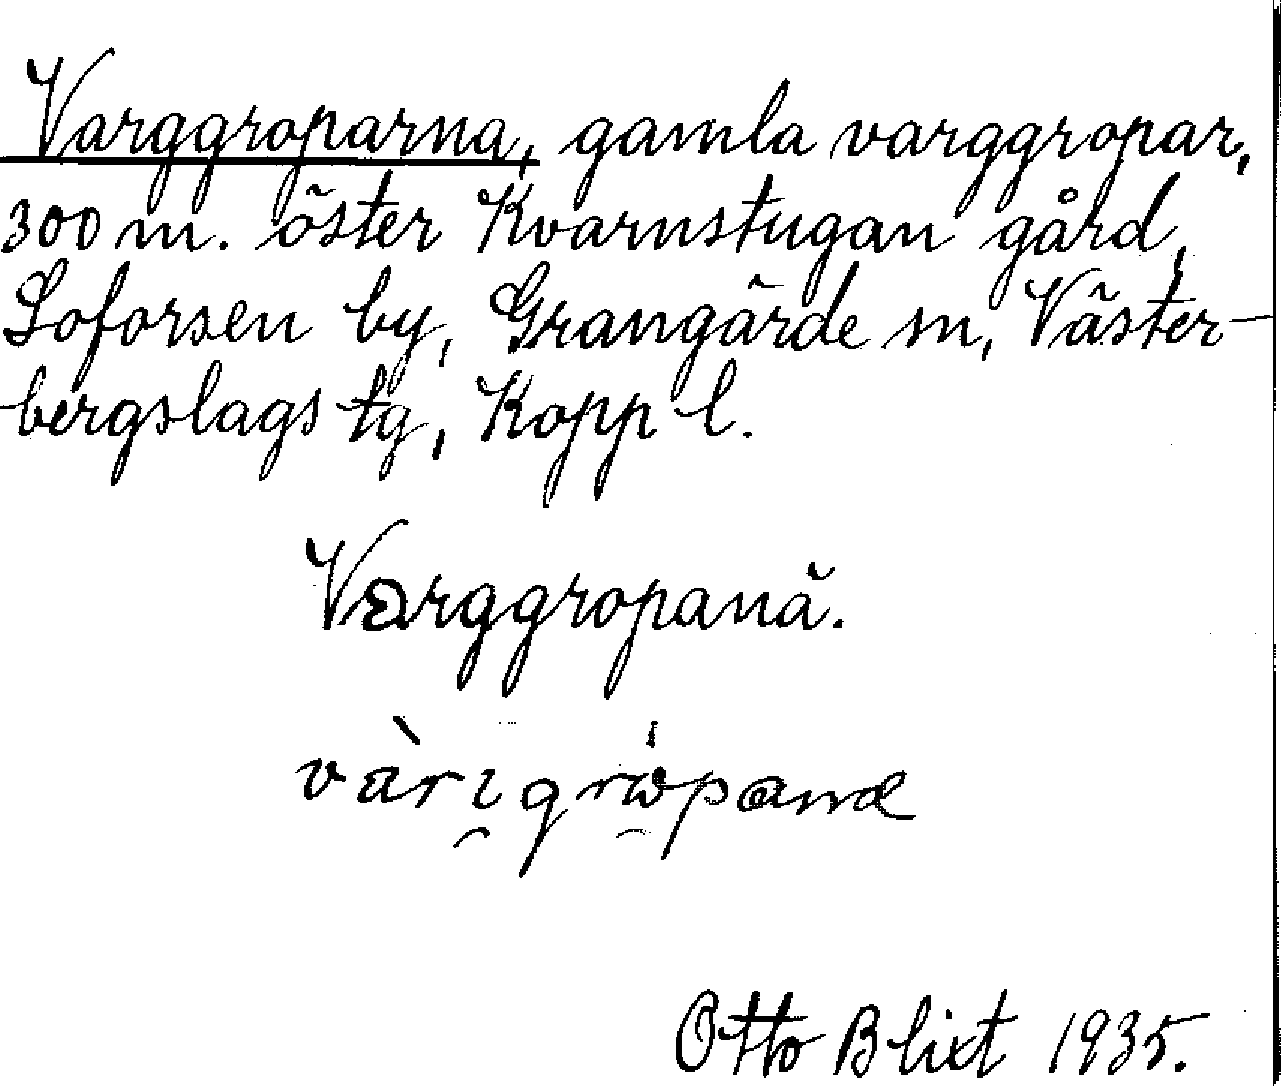 Varggroparna, gamla varggropar,
300 m. öster Kvarnstugan gård,
Loforsen by, Grangärde sn, Väster-
bergslags tg, Kopp l.
Varggropanä.
vàrıgrὼpanæ
Otto Blixt 1935.